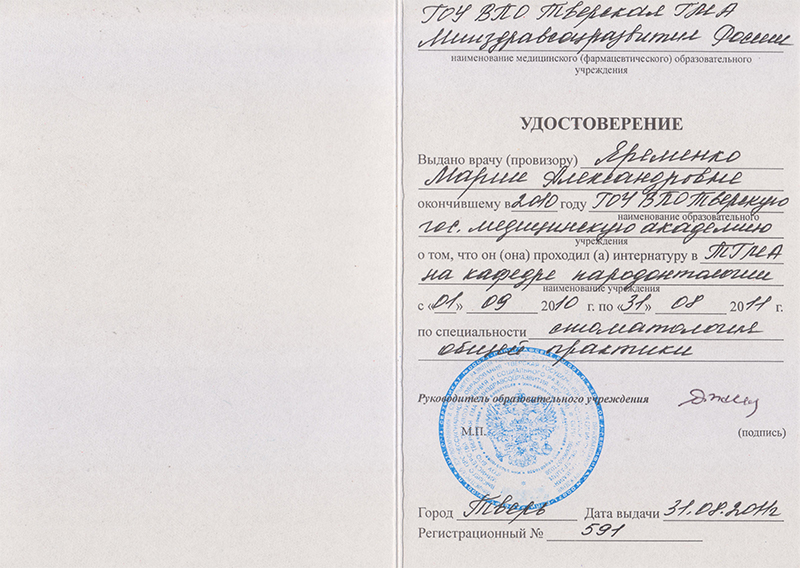 ГОУ ВПО Тверская ГМА
Минздравсоцразвития России
наименование медицинского (фармацевтического) образовательного
учреждения
УДОСТОВЕРЕНИЕ
Выдано врачу (провизору) Яременко
Марие Александровне
окончившему в 2010 году ГОУ ВПО Тверскую
наименование образовательного
гос. медицинскую академию
учреждения
о том, что он (она) проходил (а) интернатуру в ТГМА
на кафедре пародонтологии
наименование учреждения
с «01» 09 2010 г. по «31» 08 2011 г.
по специальности стоматология
общей практики
Руководитель образовательного учреждения
М.П. (подпись)
Город Тверь Дата выдачи 31.08.2011г
Регистрационный № 591